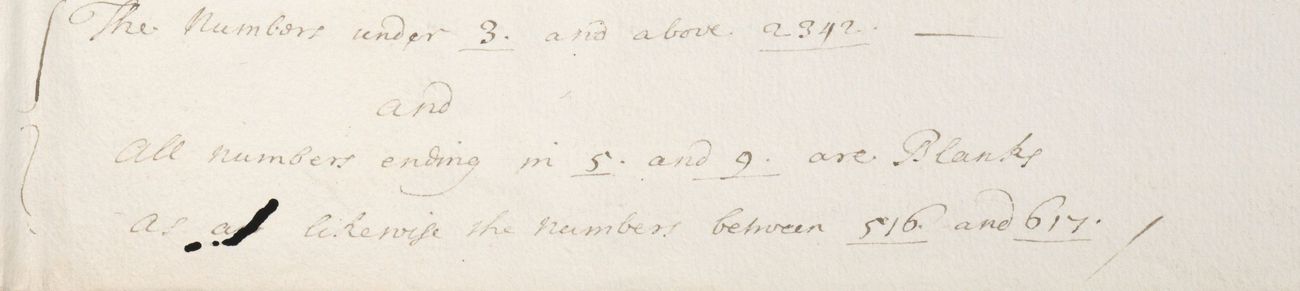 The Numbers under 3. and above 2342. —
and
All numbers ending in 5. and 9. are Blanks
As likewise the numbers between 516. and 617.